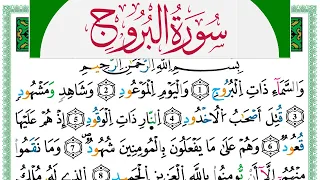 سورة البروج
بسم الله الرحمن الرحيم
وَالسَّمَآءِ ذَاتِ الْبُرُوجِ ① وَالْيَوْمِ الْمَوْعُودِ ② وَشَاهِدٍ وَمَشْهُودٍ
③ قُتِلَ أَصْحَٰبُ الْأُخْدُودِ ④ النَّارِ ذَاتِ الْوَقُودِ ⑤ إِذْ هُمْ عَلَيْهَا
قُعُودٌ ⑥ وَهُمْ عَلَىٰ مَا يَفْعَلُونَ بِالْمُؤْمِنِينَ شُهُودٌ ⑦ وَمَا نَقَمُوا
مِنْهُمْ إِلَّآ أَن يُؤْمِنُوا بِاللَّهِ الْعَزِيزِ الْحَمِيدِ ⑧ الَّذِي لَهُ مُلْكُ